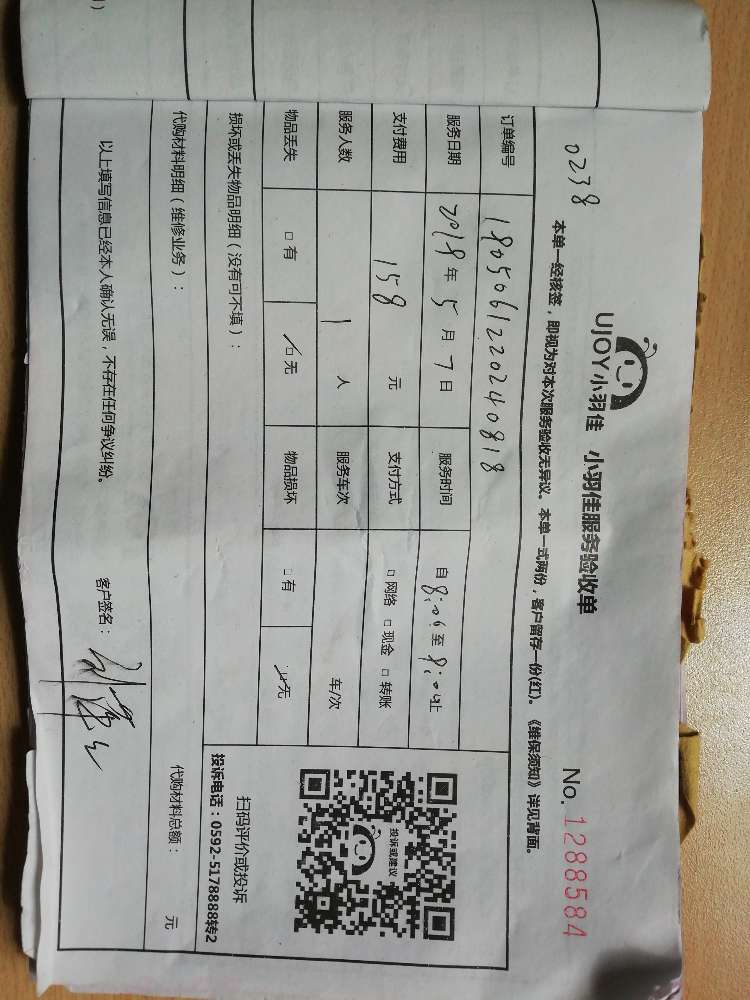 0238
UJOY小羽佳 小羽佳服务验收单
No. 1288584
本单一经核签，即视为对本次服务验收无异议。本单一式两份，客户留存一份(红)。《维保须知》详见背面。
订单编号 1805061220240818
服务日期 2018年5月7日 服务时间 自8:06至8:04止
支付费用 158元 支付方式 □网络 □现金 □转账
服务人数 1人 服务车次 车/次
物品丢失 □有 □无 物品损坏 □有 □无
损坏或丢失物品明细（没有可不填）：
投诉或建议
扫码评价或投诉
投诉电话：0592-5178888转2
代购材料明细（维修业务）： 代购材料总额： 元
以上填写信息已经本人确认无误，不存在任何争议纠纷。 客户签名：